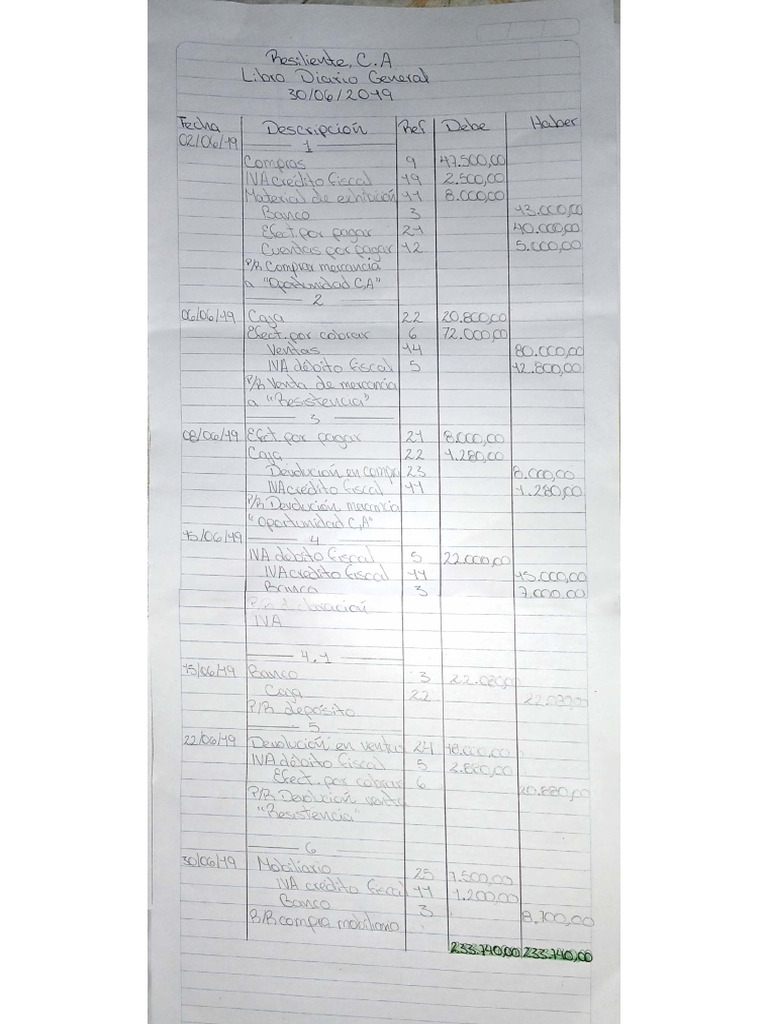 Resiliente, C.A
Libro Diario General
30/06/2019
Fecha Descripción Ref Debe Haber
02/06/19 1
Compras 9 47.500,00
IVA crédito fiscal 19 2.500,00
Material de exhibición 11 8.000,00
Banco 3 13.000,00
Efect. por pagar 21 40.000,00
Cuentas por pagar 12 5.000,00
P/R Comprar mercancia
a "Oportunidad C,A"
2
06/06/19 Caja 22 20.800,00
Efect. por cobrar 6 72.000,00
Ventas 14 80.000,00
IVA débito fiscal 5 12.800,00
P/R Venta de mercancia
a "Resistencia"
3
08/06/19 Efct. por pagar 21 8.000,00
Caja 22 1.280,00
Devolución en compra 23 8.000,00
IVA crédito fiscal 11 1.280,00
P/R Devolución mercancia
"Oportunidad C,A"
15/06/19 4
IVA débito fiscal 5 22.000,00
IVA crédito fiscal 11 15.000,00
Banco 3 7.000.00
P/R declaración
IVA
4.1
15/06/19 Banco 3 22.080,00
Caja 22 22.080,00
P/R depósito
5
22/06/19 Devolución en venta 24 18.000,00
IVA débito fiscal 5 2.880,00
Efect. por cobrar 6 20.880,00
P/R Devolución venta
"Resistencia"
6
30/06/19 Mobiliario 25 7.500,00
IVA crédito fiscal 11 1.200,00
Banco 3 8.700,00
P/R compra mobiliario
233.740,00 233.740,00